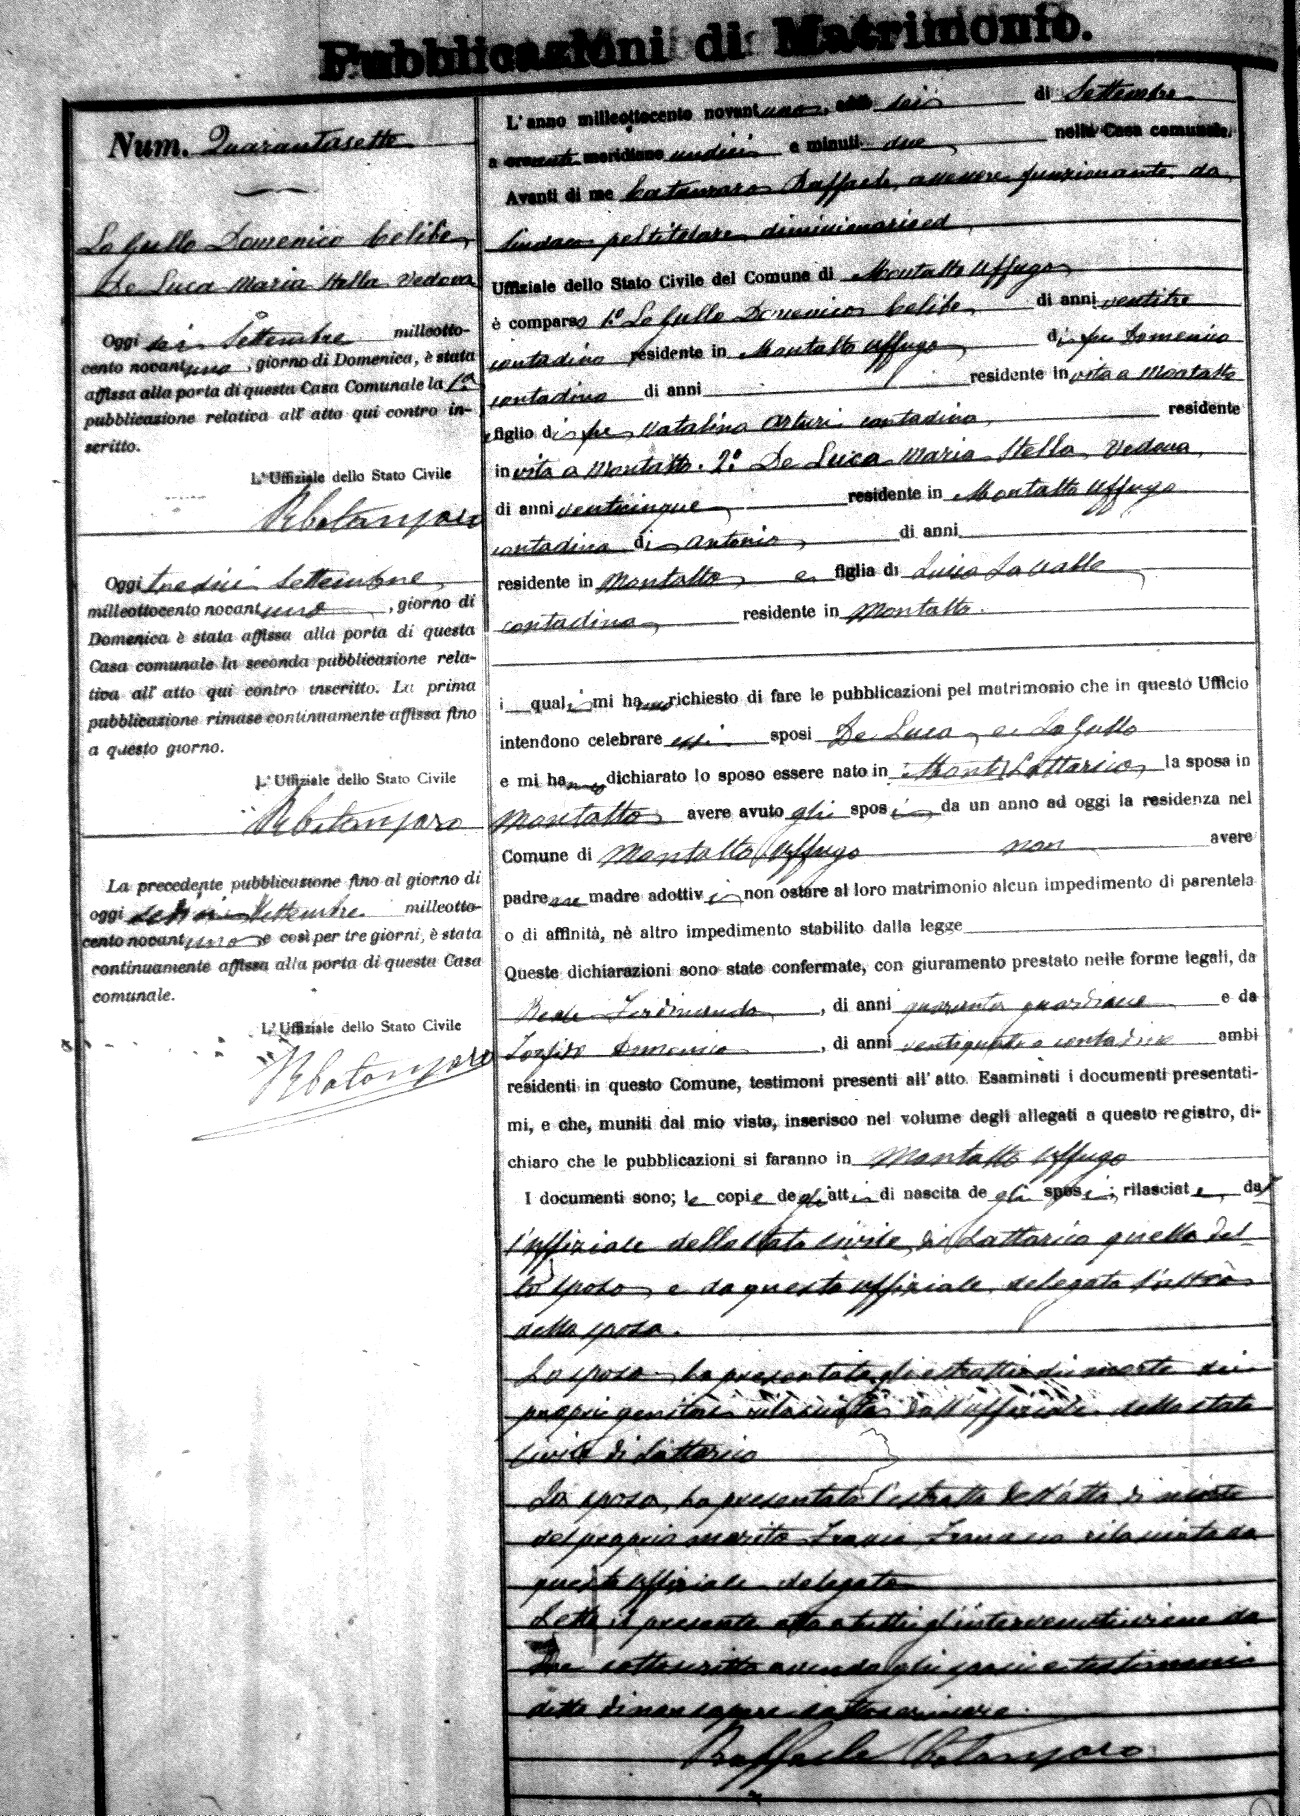 Pubblicazioni di Matrimonio.
Num. Quarantasette
Lo Gullo Domenico celibe
De Luca Maria Stella Vedova
Oggi sei Settembre milleotto-
cento novantuno, giorno di Domenica, è stata
affissa alla porta di questa Casa Comunale la 1.a
pubblicazione relativa all' atto qui contro in-
scritto.
L' Uffiziale dello Stato Civile
RCatanzaro
Oggi tredici Settembre
milleottocento novantuno, giorno di
Domenica è stata affissa alla porta di questa
Casa comunale la seconda pubblicazione rela-
tiva all' atto qui contro inscritto. La prima
pubblicazione rimase continuamente affissa fino
a questo giorno.
L' Uffiziale dello Stato Civile
RCatanzaro
La precedente pubblicazione fino al giorno di
oggi sedici Settembre milleotto-
cento novantuno e così per tre giorni, è stata
continuamente affissa alla porta di questa Casa
comunale.
L' Uffiziale dello Stato Civile
RCatanzaro
L' anno milleottocento novantuno, addì sei di Settembre
a ore anti meridiane undici e minuti due nella Casa comunale.
Avanti di me Catanzaro Raffaele, assessore funzionante da
Sindaco pel titolare dimissionario ed
Uffiziale dello Stato Civile del Comune di Montalto Uffugo
è comparso 1.o Lo Gullo Domenico celibe di anni ventitre
contadino residente in Montalto Uffugo di fu Domenico
contadino di anni residente in vita a Montalto
figlio di fu Natalina Arturi contadina residente
in vita a Montalto. 2.o De Luca Maria Stella Vedova
di anni venticinque residente in Montalto Uffugo
contadina di Antonio di anni
residente in Montalto e figlia di Lucia La Valle
contadina residente in Montalto.
i quali mi hanno richiesto di fare le pubblicazioni pel matrimonio che in questo Ufficio
intendono celebrare essi sposi De Luca e Lo Gullo
e mi hanno dichiarato lo sposo essere nato in Lattarico la sposa in
Montalto avere avuto gli sposi da un anno ad oggi la residenza nel
Comune di Montalto Uffugo non avere
padre ne madre adottivi non ostare al loro matrimonio alcun impedimento di parentela
o di affinità, nè altro impedimento stabilito dalla legge
Queste dichiarazioni sono state confermate, con giuramento prestato nelle forme legali, da
Ferdinando, di anni quaranta guardiano e da
Domenico, di anni ventiquattro contadino ambi
residenti in questo Comune, testimoni presenti all' atto. Esaminati i documenti presentati-
mi, e che, muniti dal mio visto, inserisco nel volume degli allegati a questo registro, di-
chiaro che le pubblicazioni si faranno in Montalto Uffugo
I documenti sono; le copie degli atti di nascita degli sposi; rilasciate dal
l'uffiziale dello Stato Civile di Lattarico quella del
lo sposo e da questo uffiziale delegato l'altra
della sposa.
Lo sposo ha presentato gli estratti di morte dei
proprii genitori rilasciati dall'uffiziale dello stato
Civile di Lattarico
La sposa ha presentato l'estratto dell'atto di morte
del proprio marito Francesco rilasciato da
questo uffiziale delegato
Letto il presente atto a tutti gl'intervenuti viene da
me sottoscritto avendo gli sposi e testimoni
detto di non sapere sottoscrivere.
Raffaele Catanzaro